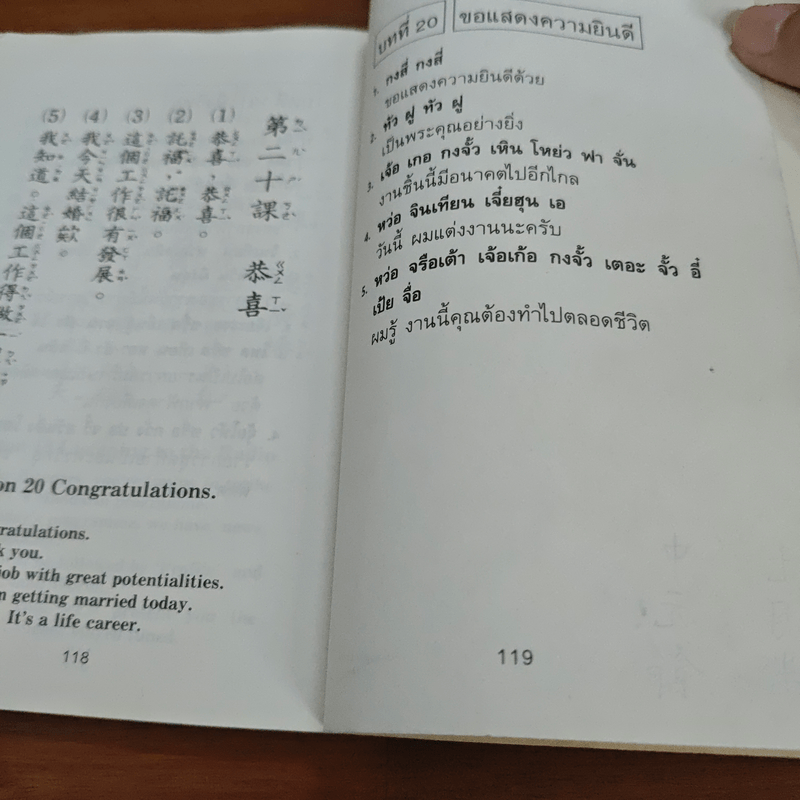 第二十課 恭喜
(1) 恭喜,恭喜。
(2) 託福,託福。
(3) 這個工作很有發展。
(4) 我今天結婚欸。
(5) 我知道。這個工作得做一
on 20 Congratulations.
ratulations.
k you.
job with great potentialities.
n getting married today.
It's a life career.
118
บทที่ 20 ขอแสดงความยินดี
1. กงสี่ กงสี่
ขอแสดงความยินดีด้วย
2. ทัว ฝู ทัว ฝู
เป็นพระคุณอย่างยิ่ง
3. เจ้อ เกอ กงจั้ว เหิน โหย่ว ฟา จั่น
งานชิ้นนี้มีอนาคตไปอีกไกล
4. หว่อ จินเทียน เจี๋ยฮุน เอ
วันนี้ ผมแต่งงานนะครับ
5. หว่อ จรือเต้า เจ้อเก้อ กงจั้ว เตอะ จั้ว อี๋
เป้ย จื่อ
ผมรู้ งานนี้คุณต้องทำไปตลอดชีวิต
119